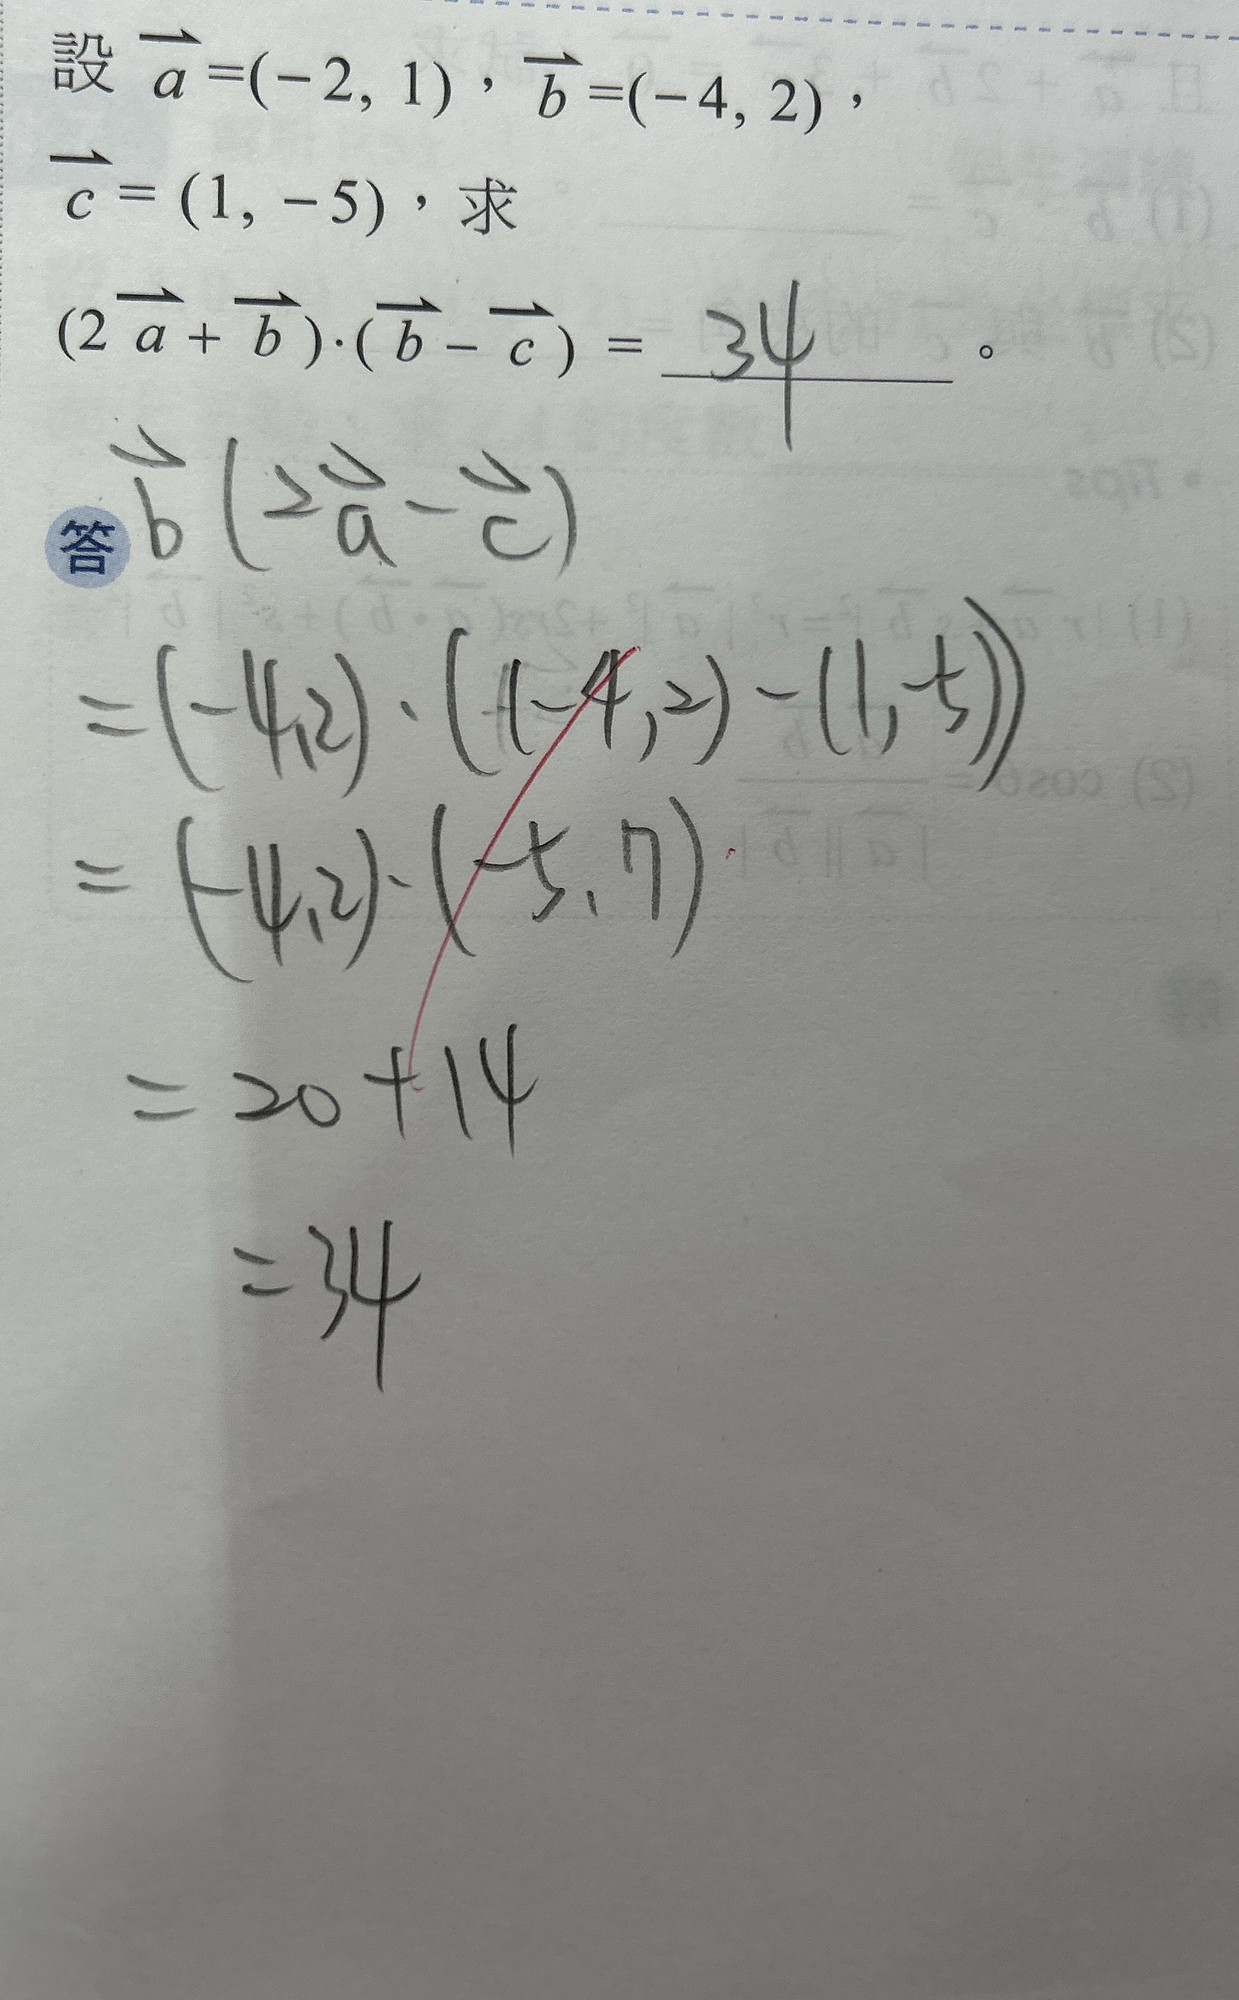 設 a=(−2, 1)，b=(−4, 2)，
c = (1, −5)，求
(2a + b)·(b − c) = 34 。
b(2a−c)
答
=(−4,2)·((−4,2)−(1,−5))
=(−4,2)·(−5,7)
=20+14
=34